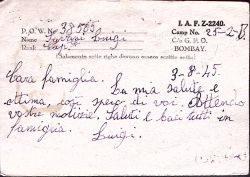 I. A. F. Z-2240.
P.O.W. No 38565
Camp No. 25-2-
Name Luigi
C/o G. P. O.
Rank Cap.
BOMBAY.
(Solamente sette righe devono essere scritte sotto)
3-8-45.
Cara famiglia. La mia salute è
ottima, così spero di voi. Attendo
vostre notizie. Saluti e baci tutti in
famiglia.
Luigi.